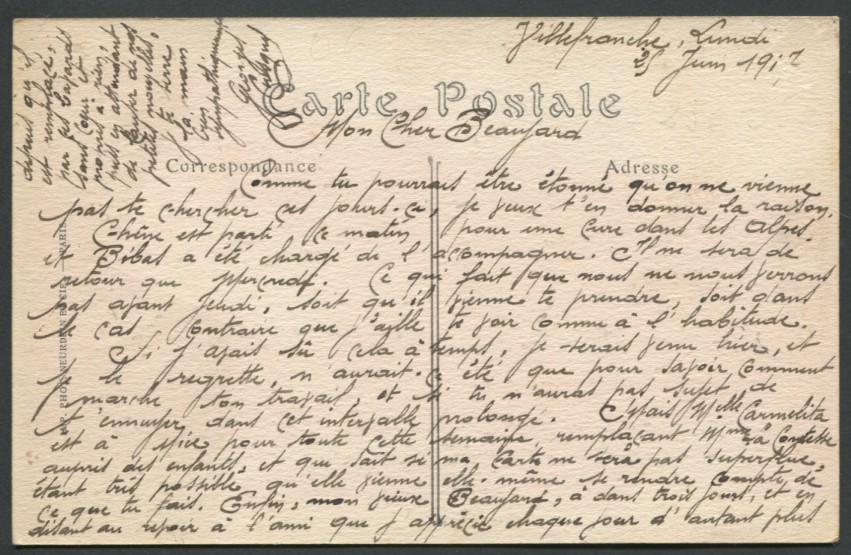 Villefranche, Lundi
25 Juin 1917
Carte Postale
Mon Cher Beaujard
Correspondance
Adresse
Comme tu pourrais être étonné qu'on ne vienne
pas te chercher ces jours-ci, je veux t'en donner la raison.
est parti ce matin pour une cure dans les Alpes.
et Bibas a été chargé de l'accompagner. Il ne sera de
retour que Mercredi. Ce qui fait que nous ne nous verrons
pas avant Jeudi, soit qu'il vienne te prendre, soit dans
le cas contraire que j'aille te voir comme à l'habitude.
Si j'avais sû cela à temps, je serais venu hier, et
je le regrette, n'aurait-ce été que pour savoir comment
marche ton travail, et si tu n'auras pas sujet de
t'ennuyer dans cet intervalle prolongé. Mais Melle Carmelita
est à pour toute cette semaine, remplaçant Mme la Comtesse
auprès des enfants, et qui sait si ma carte ne sera pas superflue,
étant très possible qu'elle vienne elle-même se rendre compte de
ce que tu fais. Enfin, mon vieux Beaujard, à dans trois jours, et en
disant au revoir à l'ami que j'apprécie chaque jour d'autant plus
depuis qu'il
est remplacé,
par ces bavards
sans cœur et
propres à rien,
puis en attendant
de causer de nos
petites nouvelles,
je te serre
la main
bien
sympathiquement
Georges